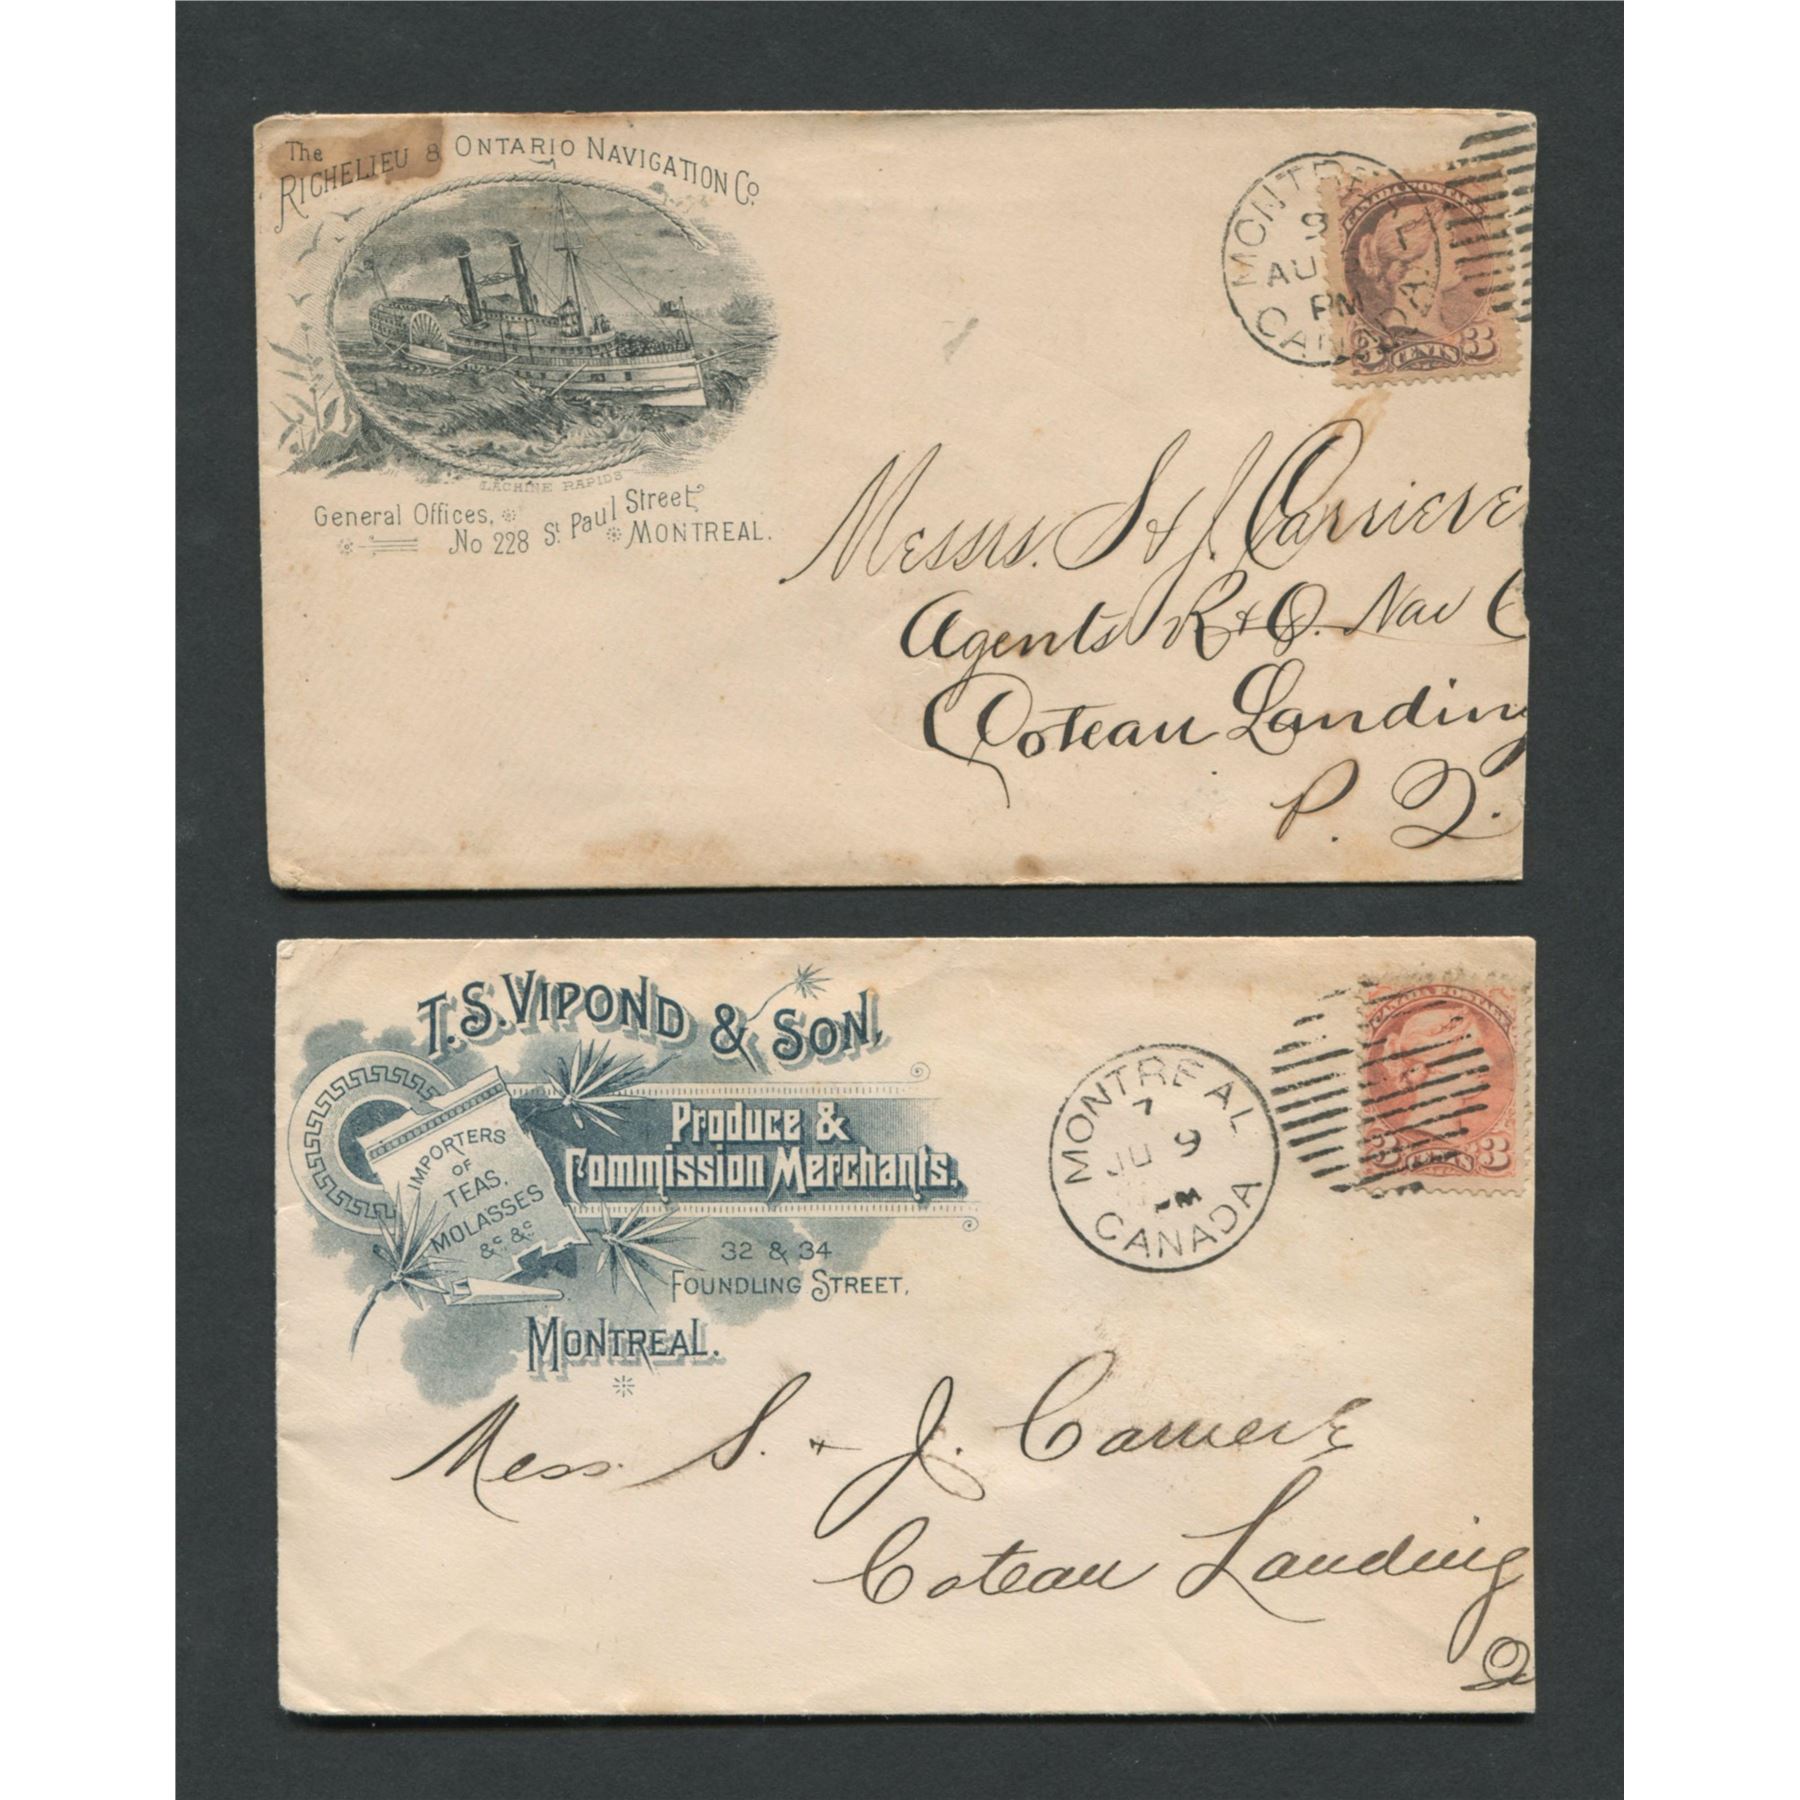 The
RICHELIEU & ONTARIO NAVIGATION Co.
LACHINE RAPIDS
General Offices,
No 228 St. Paul Street,
MONTREAL.
MONTRE
9
AU
PM
CANADA
CANADA POSTAGE
3 CENTS 3
Messrs. S & J. Carriere
Agents R & O. Nav C
Coteau Landing
P. Q.
T.S. VIPOND & SON,
Produce &
Commission Merchants.
IMPORTERS
OF
TEAS,
MOLASSES
&c. &c.
32 & 34
FOUNDLING STREET,
MONTREAL.
MONTREAL
7
JU 9
PM
CANADA
CANADA POSTAGE
3 CENTS 3
Mess. S. & J. Carriere
Coteau Landing
Q